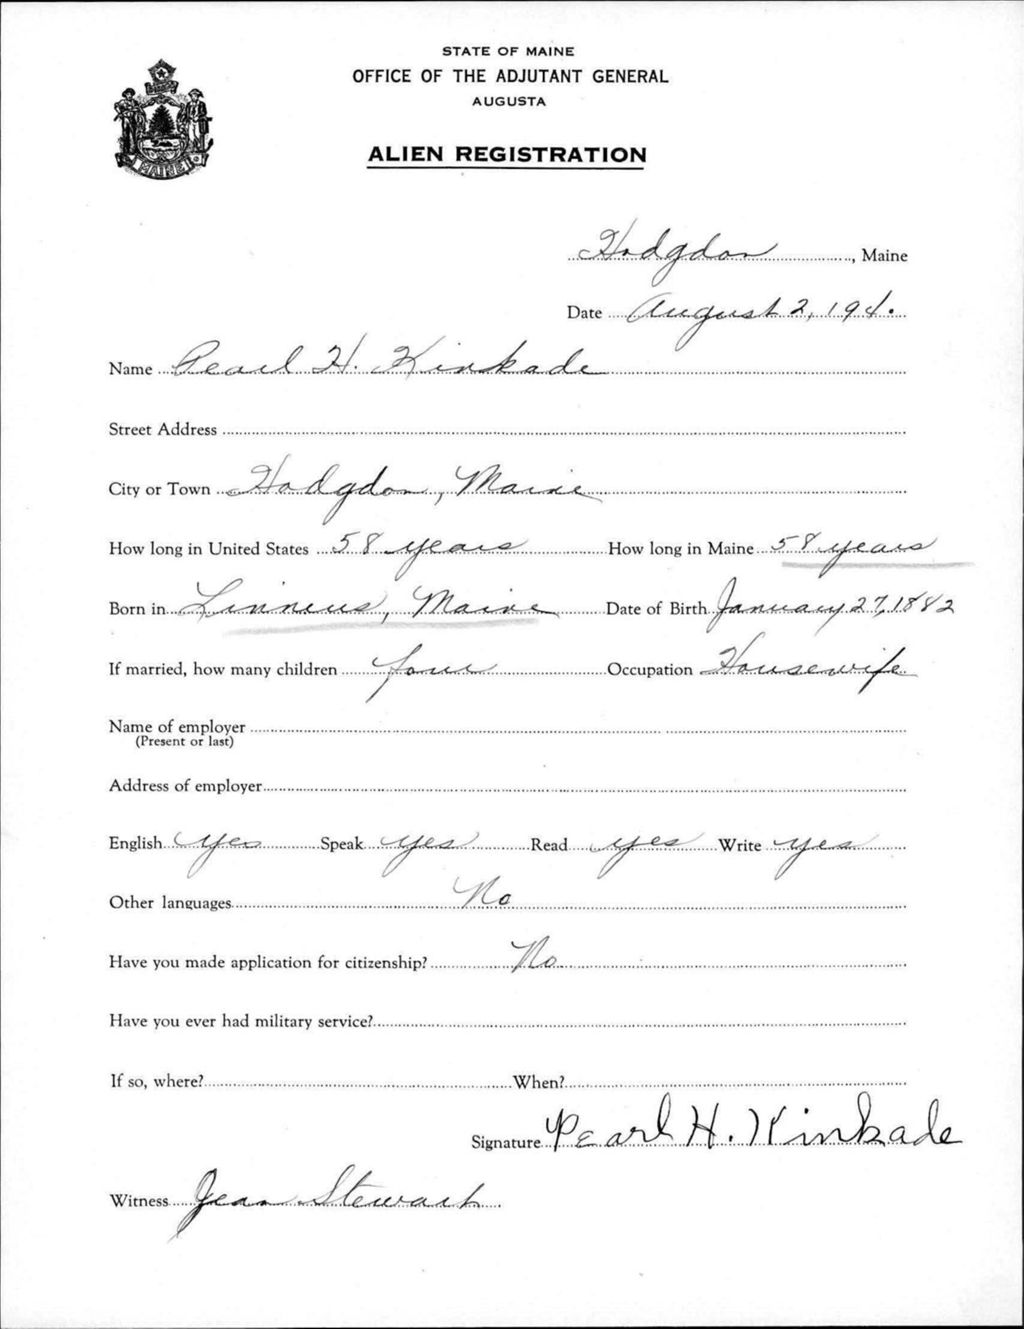 STATE OF MAINE
OFFICE OF THE ADJUTANT GENERAL
AUGUSTA
ALIEN REGISTRATION
MAINE
Hodgdon, Maine
Date August 2, 1940
Name Pearl H. Kinkade
Street Address
City or Town Hodgdon, Maine
How long in United States 58 years How long in Maine 58 years
Born in Linneus, Maine Date of Birth January 27, 1882
If married, how many children four Occupation Housewife
Name of employer
(Present or last)
Address of employer
English yes Speak yes Read yes Write yes
Other languages No
Have you made application for citizenship? No
Have you ever had military service?
If so, where? When?
Signature Pearl H. Kinkade
Witness Jean Stewart